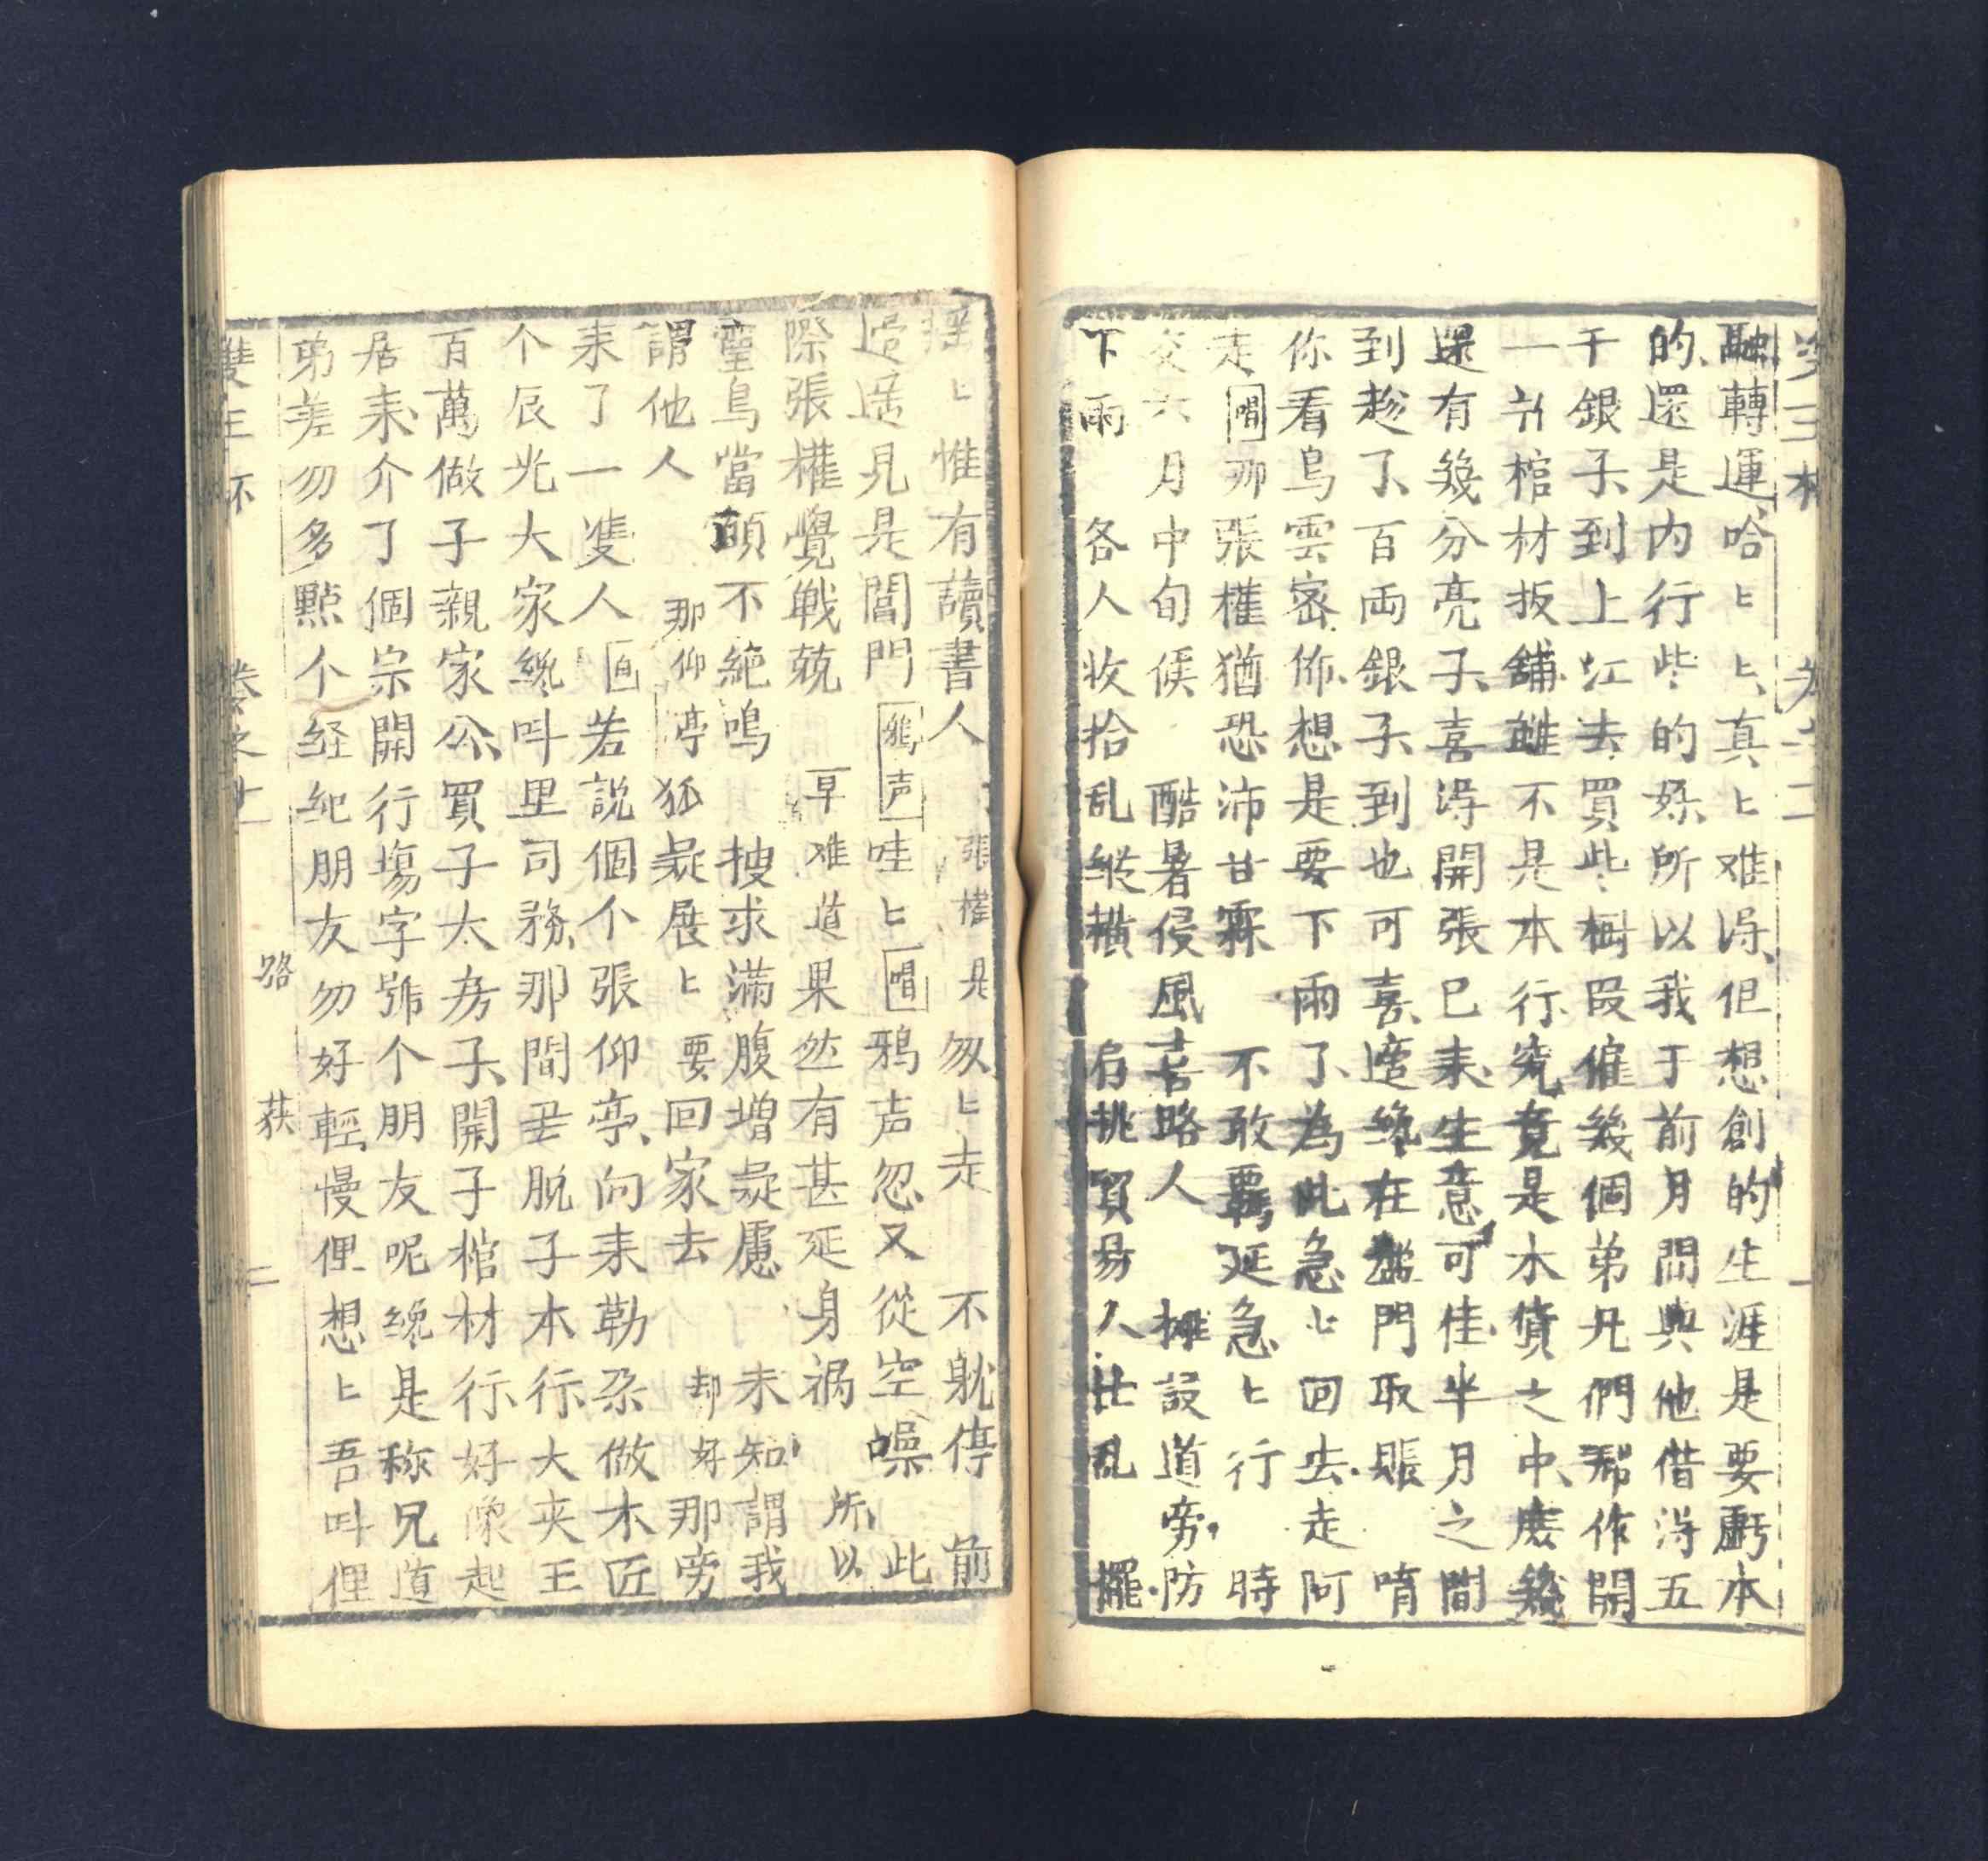 融轉運哈〻〻真〻难淂但想創的生涯是要虧本
的還是内行些的好所以我于前月問與他借淂五
千銀子到上江去買些樹段僱幾個弟兄們帮作開
一爿棺材扳舖雖不是本行究竟是木貨之中應幾
還有幾分亮子喜淂開張巳来生意可佳半月之間
到趁了百両銀子到也可喜適纔在盤門取賬唷
你看烏雲密佈想是要下雨了為此急〻回去走阿
走 唱 那張權猶恐沛甘霖 不敢羁延急〻行 時
交六月中旬候 酷暑侵風苦路人 攤設道旁防
下雨 各人收拾乱縱橫 肩挑貿易人忙乱 擺
摇〻惟有讀書人 張權是匆〻走 不躭停 前
逍遥見是閶門 鴉声 哇〻 唱 鴉声忽又從空噪 此
際張權覺戦兢 早难道果然有甚延身禍 所以
靈鳥當頭不絶鳴 搜求滿腹增疑慮 未知謂我
謂他人 那仰亭狐疑展〻要回家去 却好那旁
来了一隻人 白 若說個个張仰亭向来勒尕做木匠
个辰光大家纔呌里司務那間丟脱子本行大夹王
百萬做子親家公買子太房子開子棺材行好像起
居来介了個宗開行塲字號个朋友呢纔是称兄道
弟差勿多點个経紀朋友勿好輕慢俚想〻吾呌俚
雙玉杯 卷之十一 路 获 二